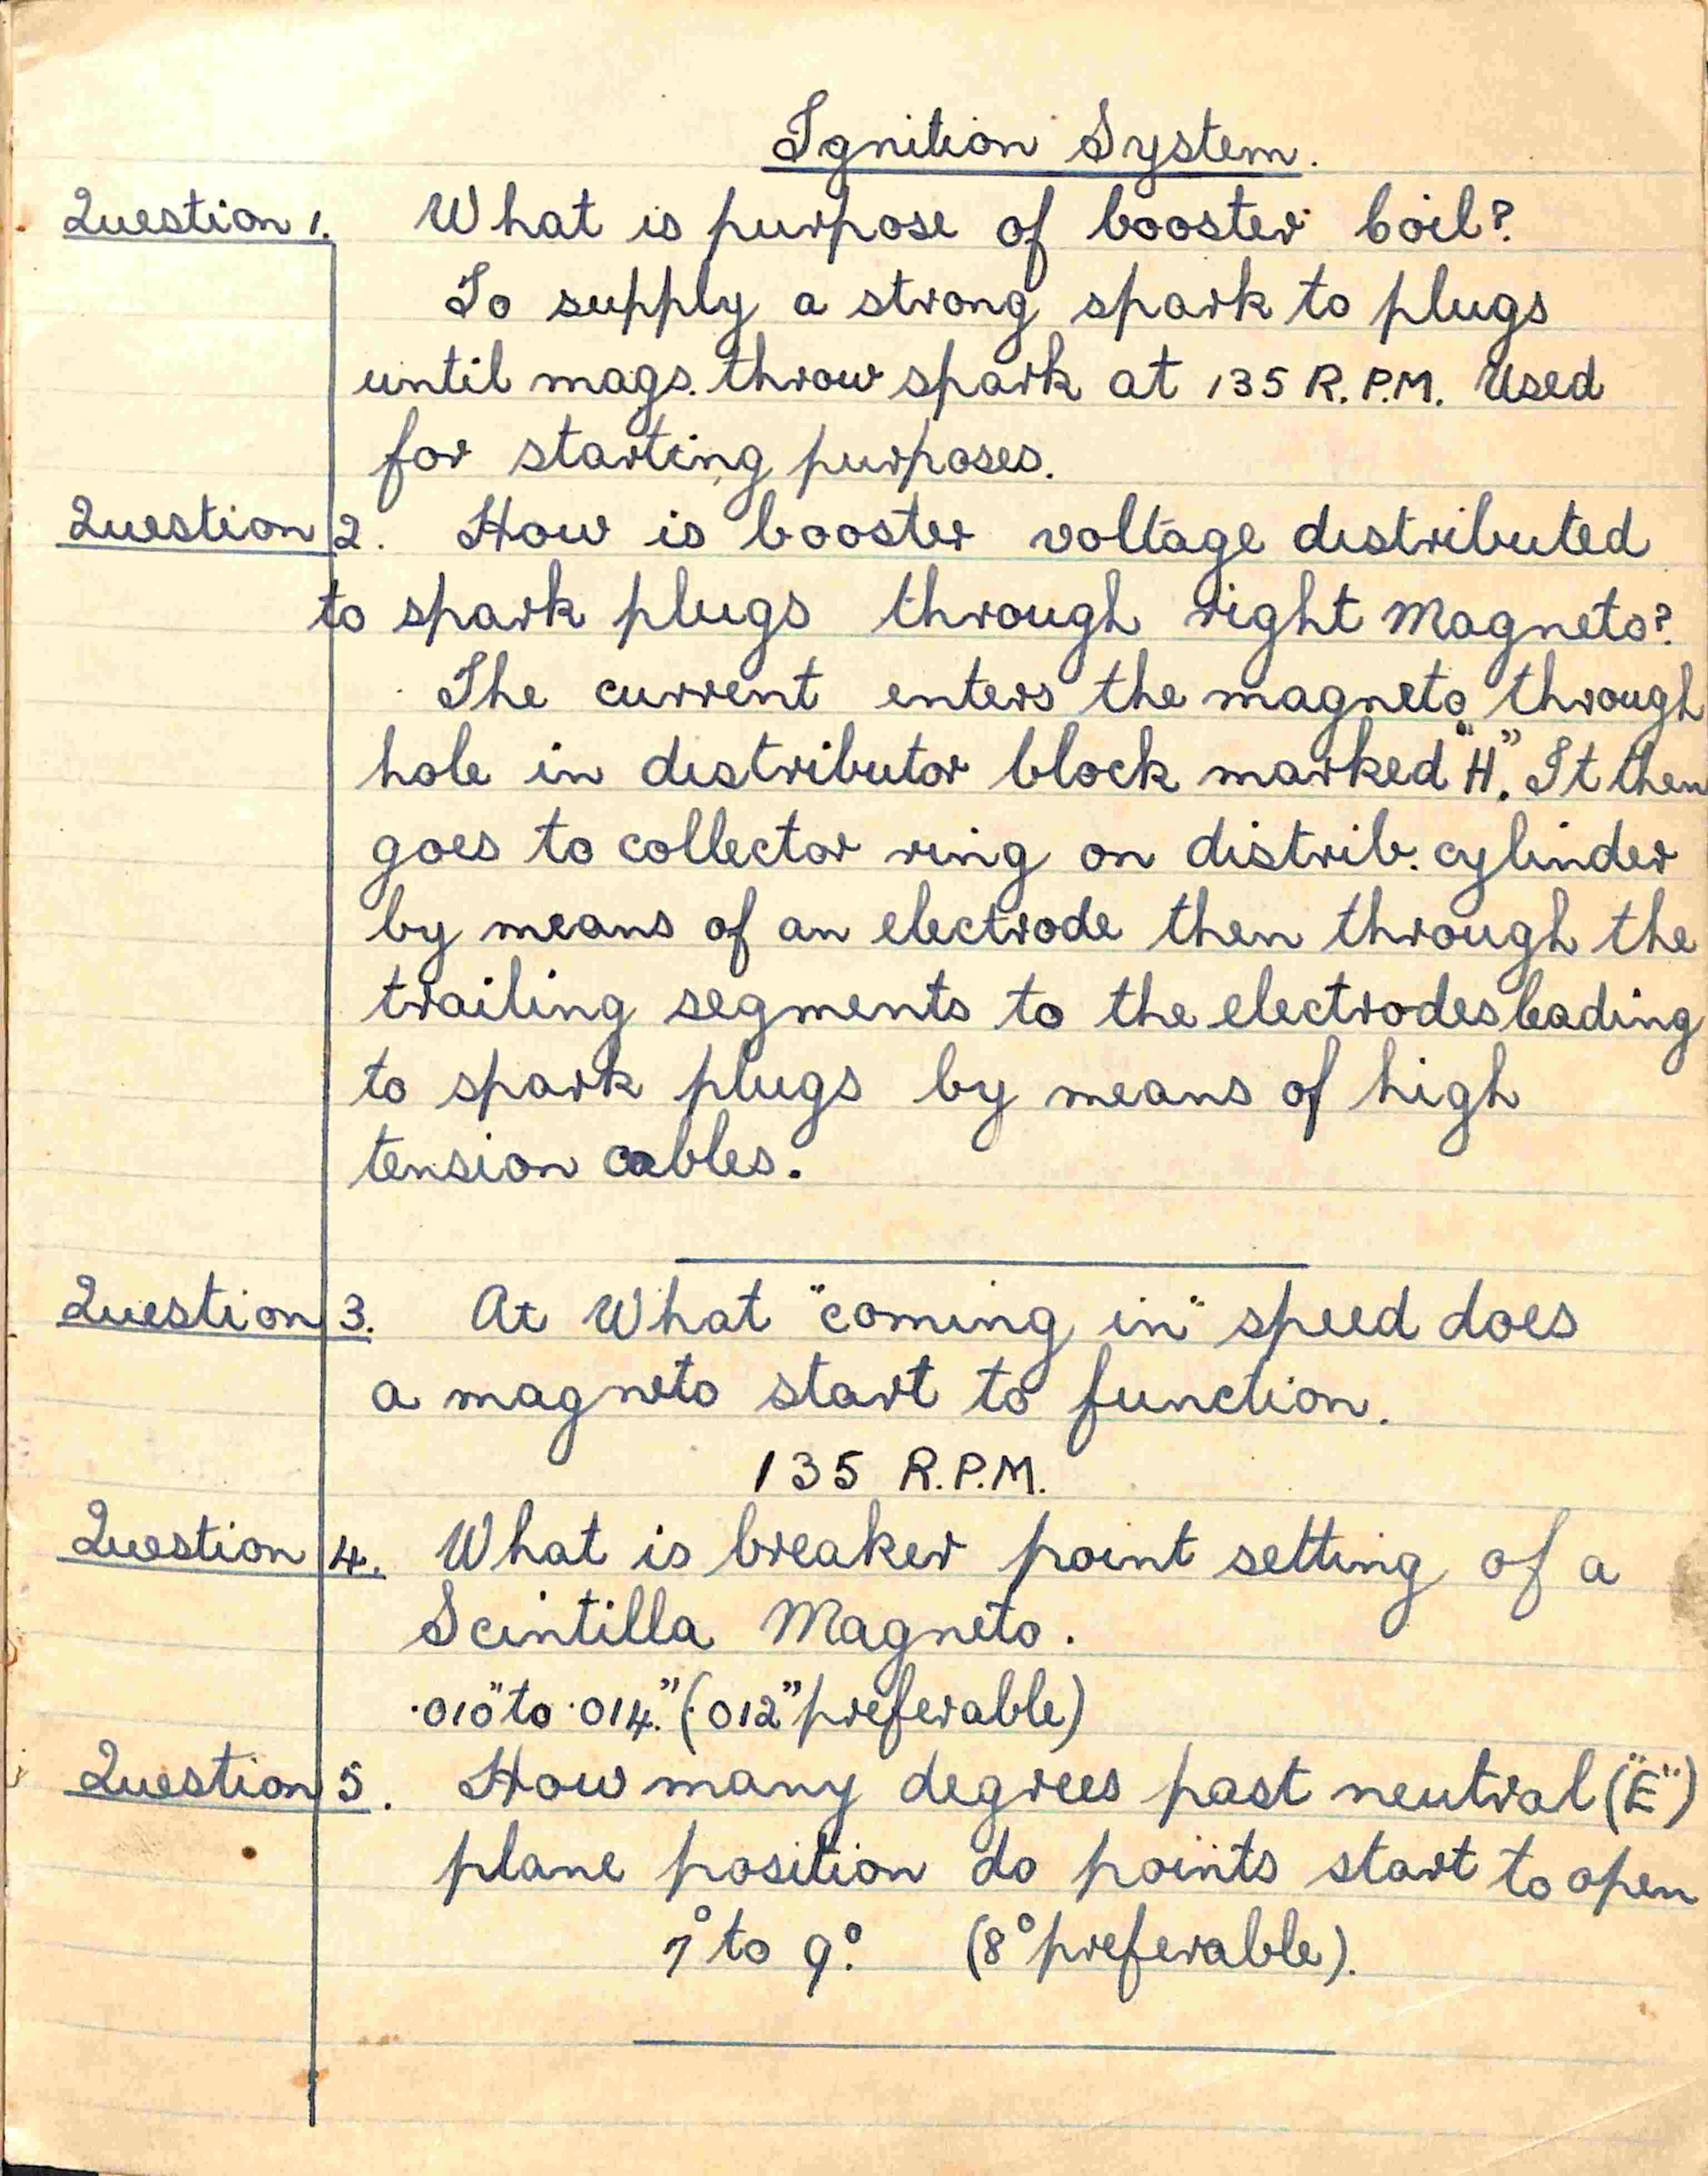 Ignition System.
Question 1. What is purpose of booster boil?
To supply a strong spark to plugs
until mags. throw spark at 135 R.P.M. Used
for starting purposes.
Question 2. How is booster voltage distributed
to spark plugs through right Magneto?
The current enters the magneto through
hole in distributor block marked "H". It then
goes to collector ring on distrib. cylinder
by means of an electrode then through the
trailing segments to the electrodes leading
to spark plugs by means of high
tension cables.
Question 3. At What "coming in" speed does
a magneto start to function.
135 R.P.M.
Question 4. What is breaker point setting of a
Scintilla Magneto.
.010" to .014." (.012" preferable)
Question 5. How many degrees past neutral ("E")
plane position do points start to open
7° to 9°. (8° preferable).